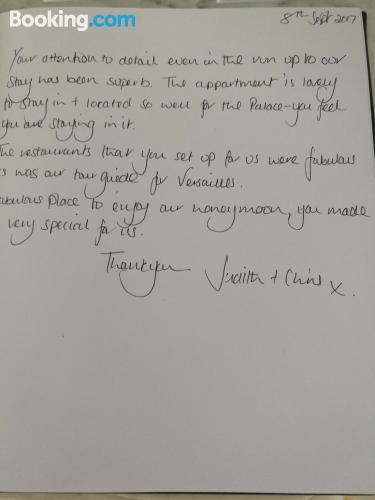 Booking.com
8th Sept 2017
Your attention to detail even in the run up to our
stay has been superb. The appartment is lovely
to stay in + located so well for the Palace - you feel
you are staying in it.
The restaurants that you set up for us were fabulous
as was our tour guide for Versailles.
Fabulous Place to enjoy our honeymoon, you made
very special for us.
Thankyou Judith + Chris x.